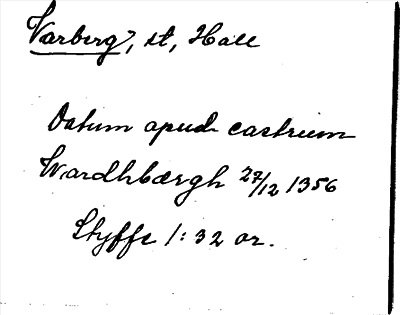 Varberg, st, Hall
Datum apud castrum
Wardhbærgh 27/12 1356
Styffe 1:32 or.